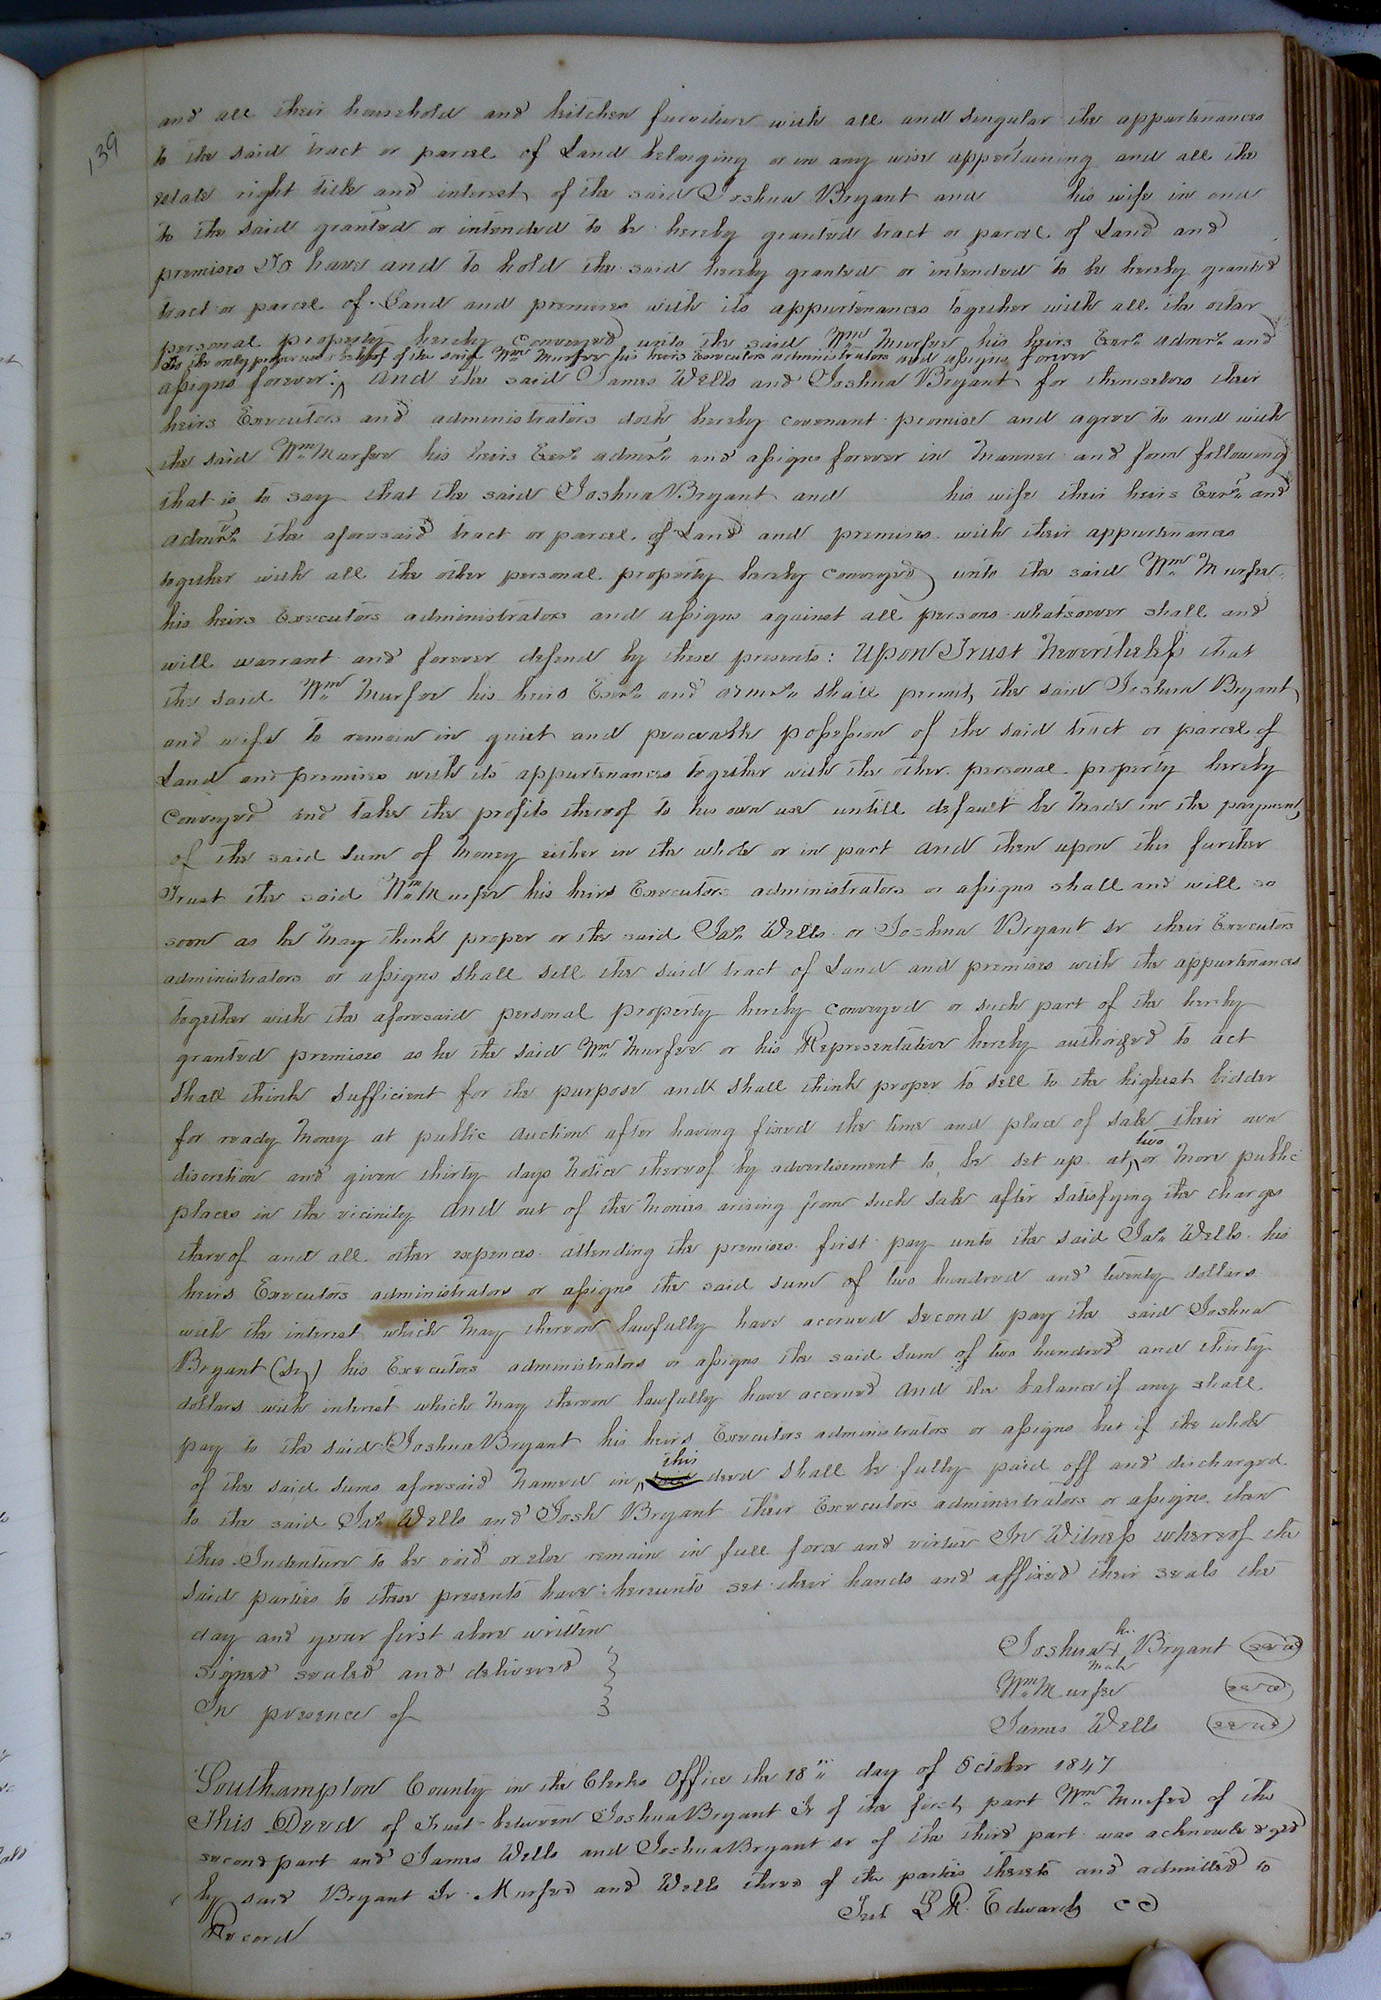 139
and all their household and kitchen furniture with all and singular the appurtenances
to the said tract or parcel of Land belonging or in any wise appertaining and all the
estate right title and interest of the said Joshua Bryant and his wife in and
to the said granted or intended to be hereby granted tract or parcel of Land and
premises To have and to hold the said hereby granted or intended to be hereby granted
tract or parcel of Land and premises with its appurtenances together with all the other
personal property hereby conveyed unto the said Wm Murfee his heirs Exors admors and
to the only proper use & behoof of the said Wm Murfee his heirs Executors administrators and assigns forever
assigns forever: ^ And the said James Wells and Joshua Bryant for themselves their
heirs Executors and administrators doth hereby covenant promise and agree to and with
the said Wm Murfee his heirs Exors admors and assigns forever in manner and form following
that is to say that the said Joshua Bryant and his wife their heirs Exors and
admors the aforesaid tract or parcel of Land and premises with their appurtenances
together with all the other personal property hereby conveyed unto the said Wm Murfee
his heirs Executors administrators and assigns against all persons whatsoever shall and
will warrant and forever defend by these presents: Upon Trust Nevertheless that
the said Wm Murfee his heirs Exors and admors shall permit the said Joshua Bryant
and wife to remain in quiet and peaceable possession of the said tract or parcel of
Land and premises with its appurtenances together with the other personal property hereby
conveyed and take the profits thereof to his own use untill default be made in the payment
of the said sum of money either in the whole or in part and then upon this further
Trust the said Wm Murfee his heirs Executors administrators or assigns shall and will so
soon as he may think proper or the said Jas Wells or Joshua Bryant sr their Executors
administrators or assigns shall sell the said tract of Land and premises with the appurtenances
together with the aforesaid personal property hereby conveyed or such part of the hereby
granted premises as he the said Wm Murfee or his Representative hereby authorized to act
shall think sufficient for the purpose and shall think proper to sell to the highest bidder
for ready money at public auction after having fixed the time and place of sale their own
discretion and given thirty days notice thereof by advertisement to be set up at ^ two or more public
places in the vicinity and out of the monies arising from such sale after satisfying the charges
thereof and all other expences attending the premises first pay unto the said Jas Wells his
heirs Executors administrators or assigns the said sum of two hundred and twenty dollars
with the interest which may thereon lawfully have accrued second pay the said Joshua
Bryant (Sr) his Executors administrators or assigns the said sum of two hundred and thirty
dollars with interest which may thereon lawfully have accrued and the balance if any shall
pay to the said Joshua Bryant his heirs Executors administrators or assigns but if the whole
of the said sums aforesaid named in ^ this deed shall be fully paid off and discharged
to the said Jas Wells and Josh Bryant their Executors administrators or assigns then
this Indenture to be void or else remain in full force and virtue In Witness whereof the
said parties to these presents have hereunto set their hands and affixed their seals the
day and year first above written
Signed sealed and delivered
In presence of
his
Joshua + Bryant seal
mark
Wm Murfee seal
James Wells seal
Southampton County in the Clerks Office the 18th day of October 1847
This Deed of Trust between Joshua Bryant Jr of the first part Wm Murfee of the
second part and James Wells and Joshua Bryant sr of the third part was acknowledged
by said Bryant Jr Murfee and Wells three of the parties thereto and admitted to
Record
Test L R. Edwards CC